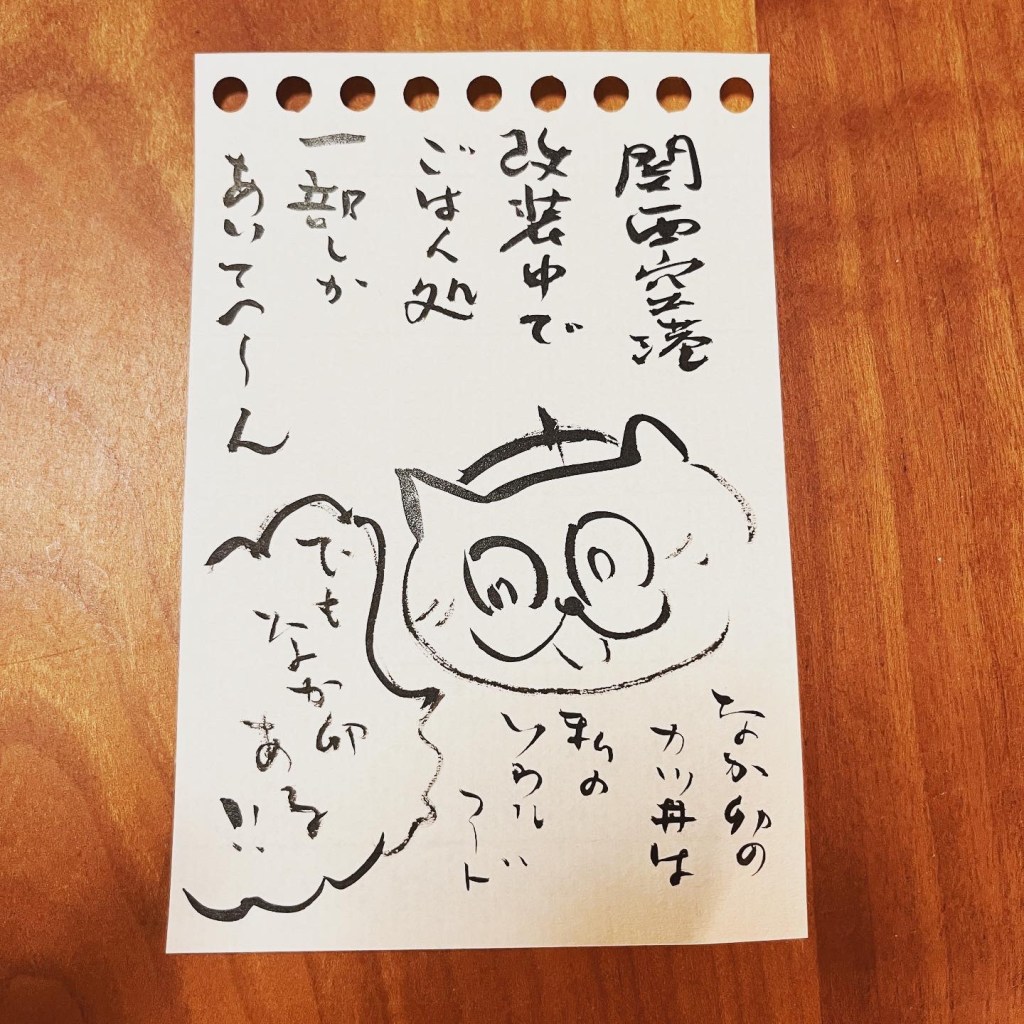 関西空港
改装中で
ごはん処
一部しか
あいてへ〜ん
でも
なか卯
ある
!!
なか卯の
カツ丼は
私の
ソウル
フード